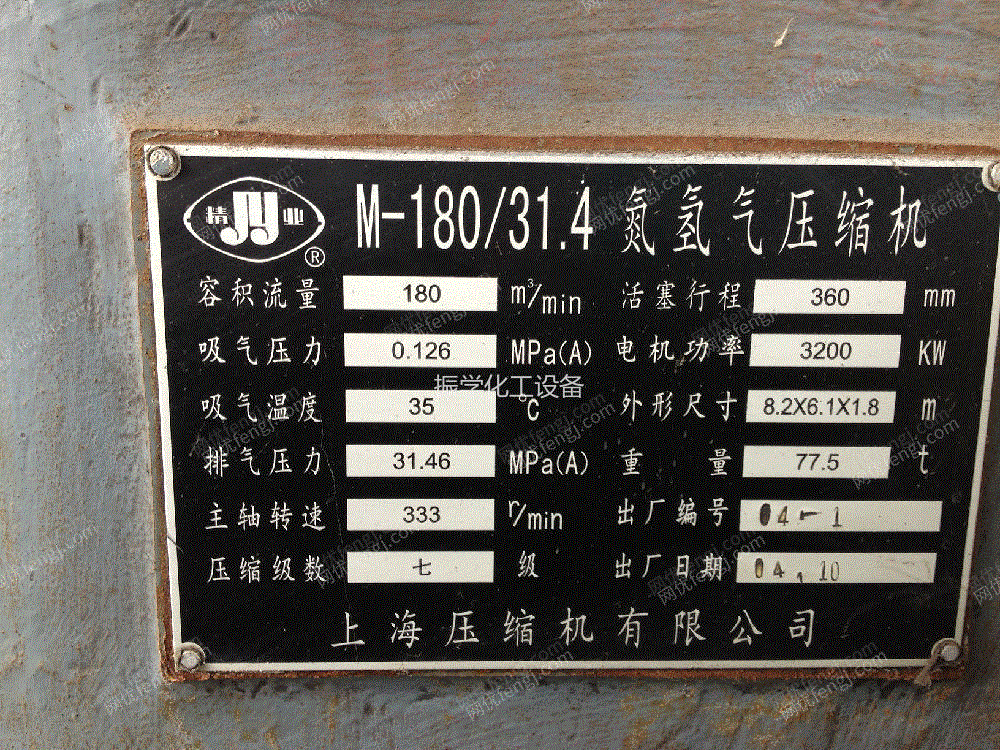 精 JY 业 ®
M-180/31.4 氮氢气压缩机
容积流量 180 m³/min 活塞行程 360 mm
吸气压力 0.126 MPa(A) 电机功率 3200 KW
振学化工设备
吸气温度 35 ℃ 外形尺寸 8.2X6.1X1.8 m
排气压力 31.46 MPa(A) 重量 77.5 t
主轴转速 333 r/min 出厂编号 04-1
压缩级数 七 级 出厂日期 04.10
上海压缩机有限公司
网优fengj.com